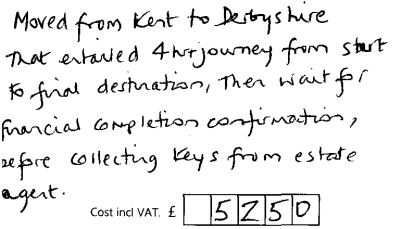 Moved from Kent to Derbyshire
That entailed 4hr journey from start
to final destination, Then wait for
financial completion confirmation,
before collecting keys from estate
agent.
Cost incl VAT. £ 5250